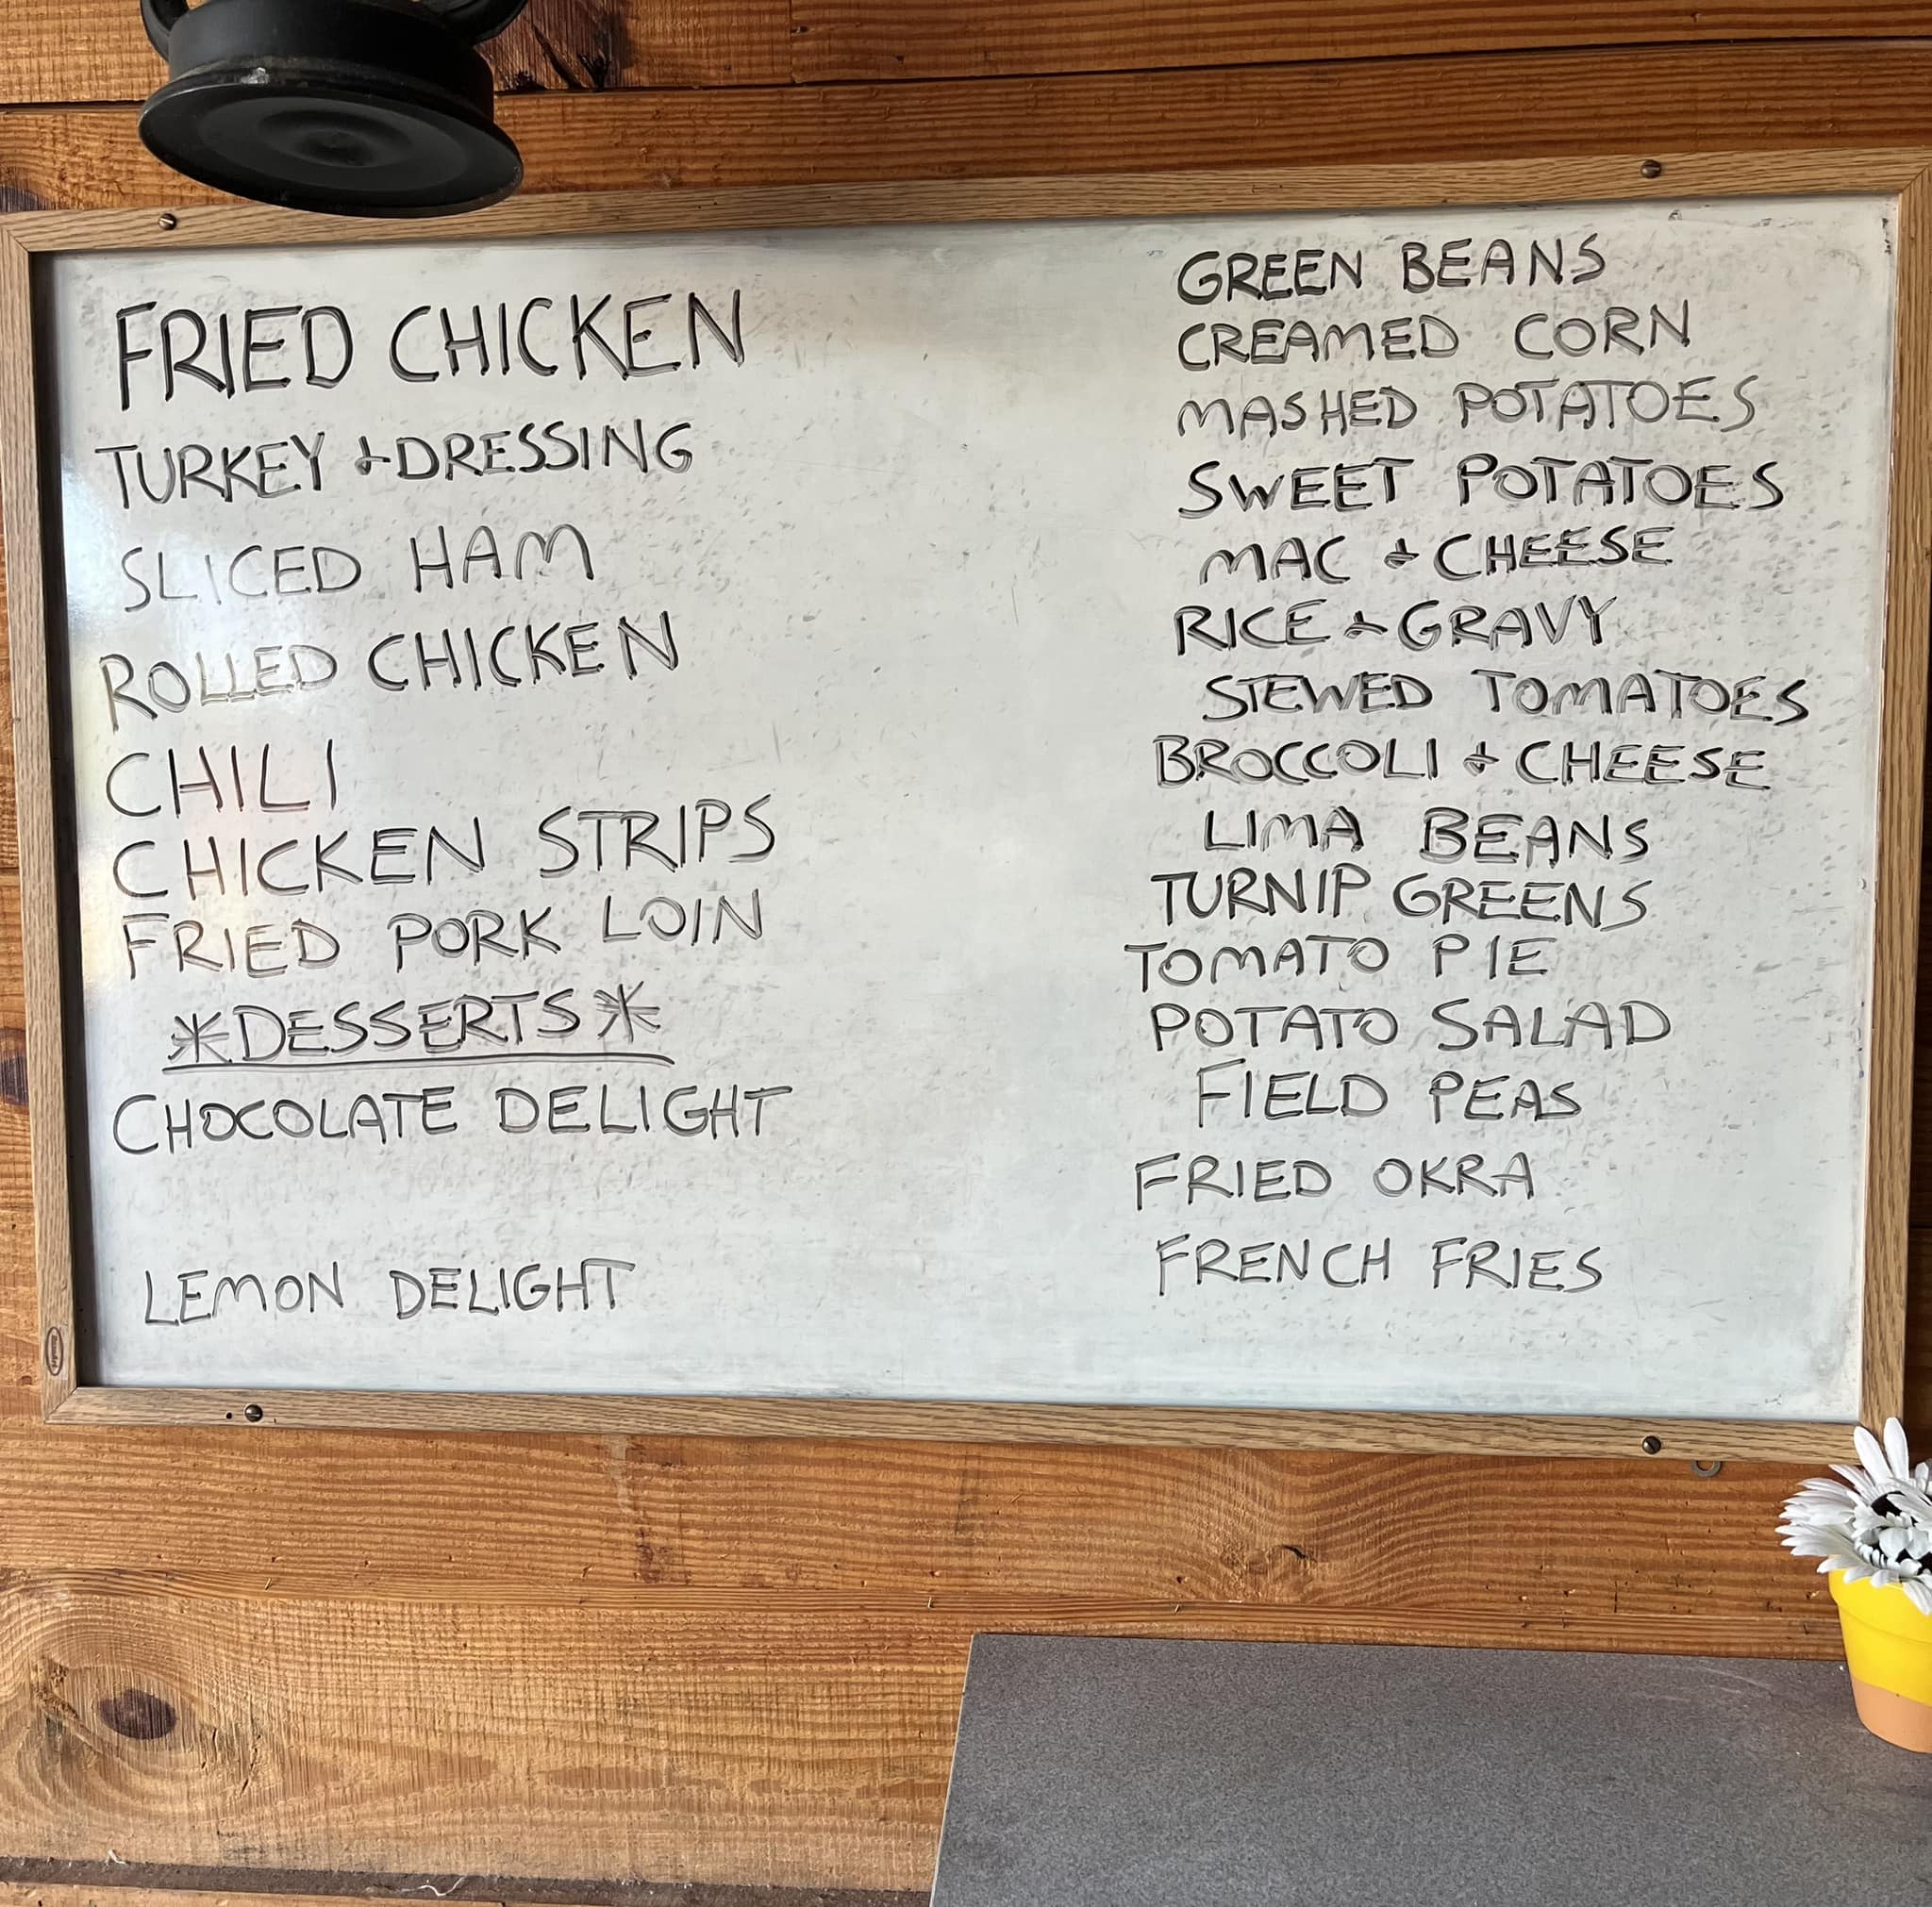 FRIED CHICKEN
TURKEY & DRESSING
SLICED HAM
ROLLED CHICKEN
CHILI
CHICKEN STRIPS
FRIED PORK LOIN
*DESSERTS*
CHOCOLATE DELIGHT
LEMON DELIGHT
GREEN BEANS
CREAMED CORN
MASHED POTATOES
SWEET POTATOES
MAC & CHEESE
RICE & GRAVY
STEWED TOMATOES
BROCCOLI & CHEESE
LIMA BEANS
TURNIP GREENS
TOMATO PIE
POTATO SALAD
FIELD PEAS
FRIED OKRA
FRENCH FRIES